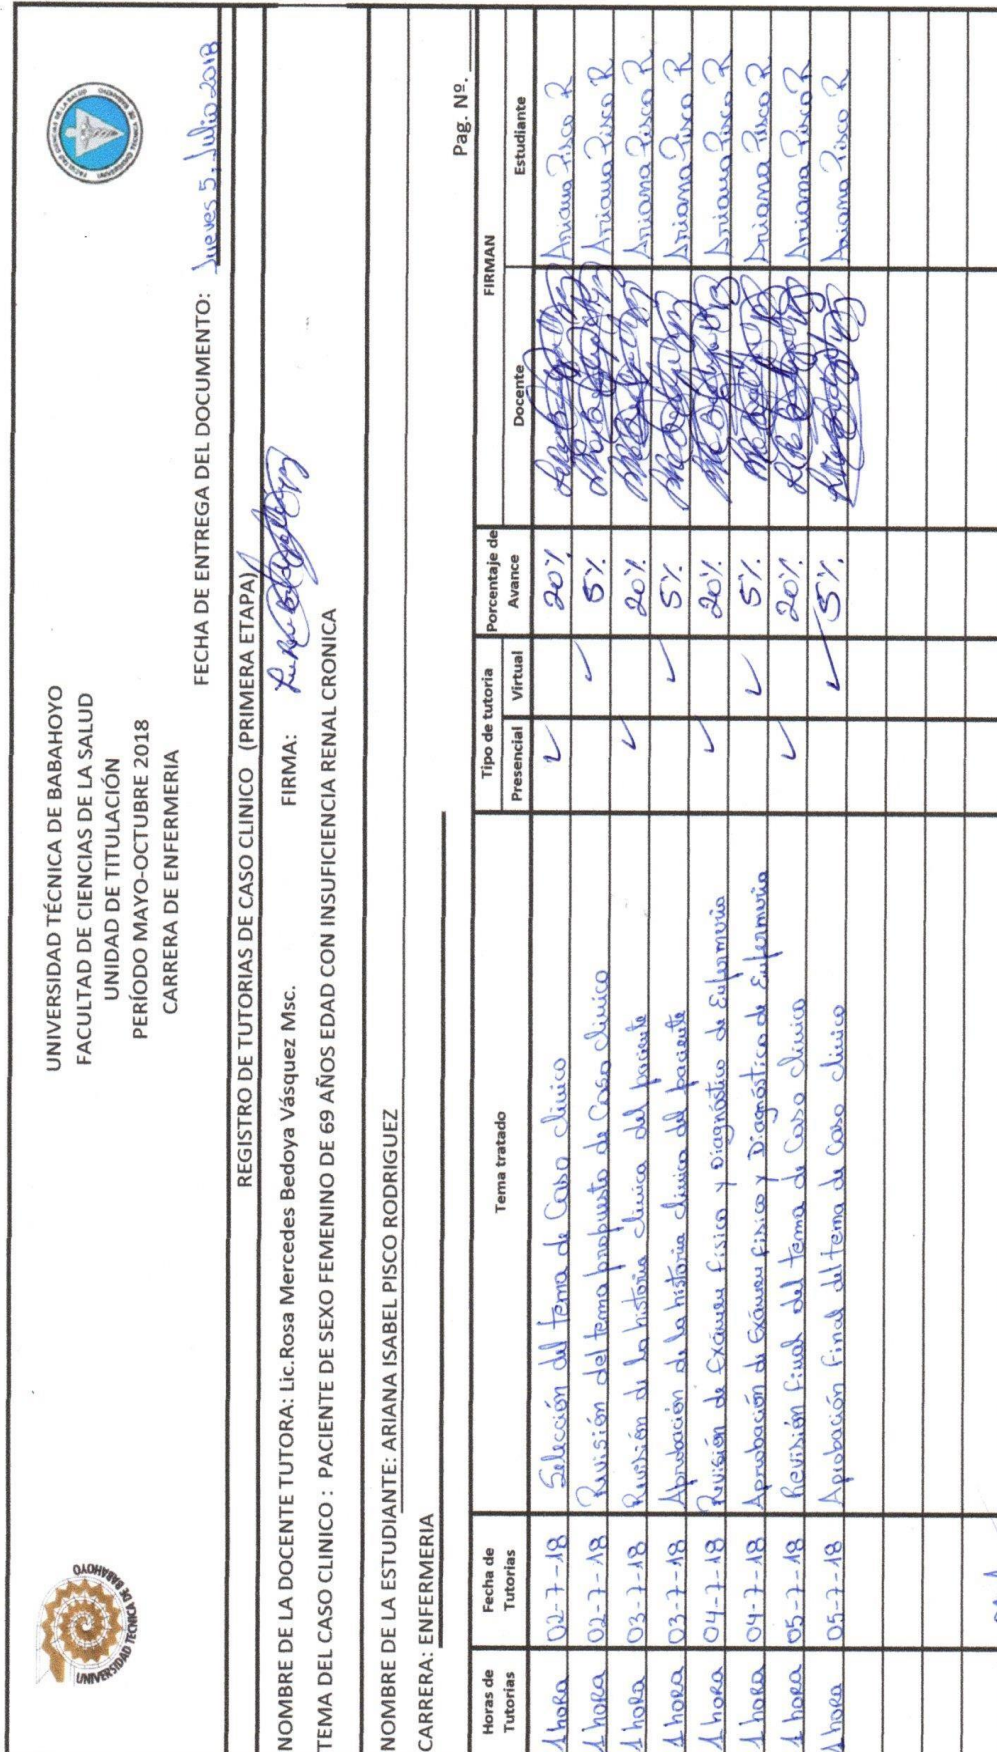 UNIVERSIDAD TECNICA DE BABAHOYO
UNIVERSIDAD TÉCNICA DE BABAHOYO
FACULTAD DE CIENCIAS DE LA SALUD
UNIDAD DE TITULACIÓN
PERÍODO MAYO-OCTUBRE 2018
CARRERA DE ENFERMERIA
FECHA DE ENTREGA DEL DOCUMENTO: Jueves 5, Julio 2018
REGISTRO DE TUTORIAS DE CASO CLINICO (PRIMERA ETAPA)
NOMBRE DE LA DOCENTE TUTORA: Lic.Rosa Mercedes Bedoya Vásquez Msc. FIRMA:
TEMA DEL CASO CLINICO : PACIENTE DE SEXO FEMENINO DE 69 AÑOS EDAD CON INSUFICIENCIA RENAL CRONICA
NOMBRE DE LA ESTUDIANTE: ARIANA ISABEL PISCO RODRIGUEZ
CARRERA: ENFERMERIA
Pag. Nº.
Horas de Tutorias Fecha de Tutorias Tema tratado Tipo de tutoria Porcentaje de Avance FIRMAN
Presencial Virtual Docente Estudiante
1 hora 02-7-18 Selección del tema de Caso clinico ✓ 20% Ariana Pisco R
1 hora 02-7-18 Revisión del tema propuesto de Caso clinico ✓ 5% Ariana Pisco R
1 hora 03-7-18 Revisión de la historia clinica del paciente ✓ 20% Ariana Pisco R
1 hora 03-7-18 Aprobación de la historia clinica del paciente ✓ 5% Ariana Pisco R
1 hora 04-7-18 Revisión de Exámen físico y Diagnóstico de Enfermeria ✓ 20% Ariana Pisco R
1 hora 04-7-18 Aprobación de Exámen físico y Diagnóstico de Enfermeria ✓ 5% Ariana Pisco R
1 hora 05-7-18 Revisión Final del tema de Caso clinico ✓ 20% Ariana Pisco R
1 hora 05-7-18 Aprobación Final del tema de Caso clinico ✓ 5% Ariana Pisco R